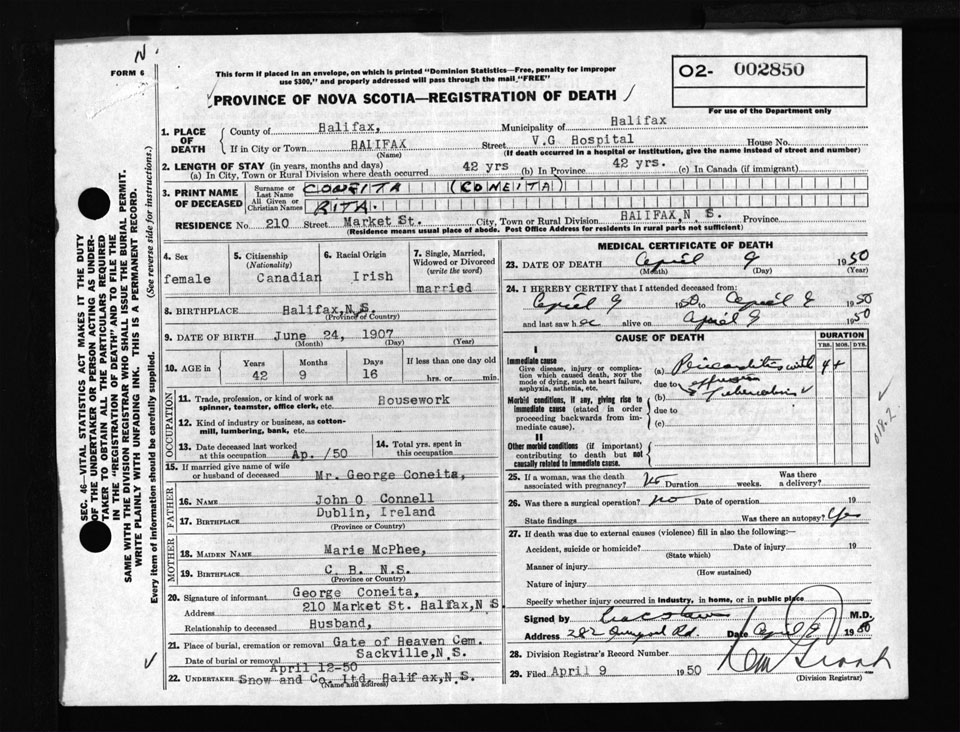 N
FORM 6
This form if placed in an envelope, on which is printed "Dominion Statistics—Free, penalty for improper
use $300," and properly addressed will pass through the mail "FREE"
PROVINCE OF NOVA SCOTIA—REGISTRATION OF DEATH
O2- 002850
For use of the Department only
1. PLACE OF DEATH
County of Halifax, Municipality of Halifax
If in City or Town HALIFAX Street V.G Hospital House No.
(Name) (If death occurred in a hospital or institution, give the name instead of street and number)
2. LENGTH OF STAY (in years, months and days)
(a) In City, Town or Rural Division where death occurred 42 yrs (b) In Province 42 yrs. (c) In Canada (if immigrant)
3. PRINT NAME OF DECEASED
Surname or Last Name CONEITA (CONEITA)
All Given or Christian Names RITA.
RESIDENCE No. 210 Street Market St. City, Town or Rural Division HALIFAX,N S. Province
(Residence means usual place of abode. Post Office Address for residents in rural parts not sufficient)
4. Sex female
5. Citizenship (Nationality) Canadian
6. Racial Origin Irish
7. Single, Married, Widowed or Divorced (write the word) married
8. BIRTHPLACE Halifax,N.S.
(Province or Country)
9. DATE OF BIRTH June 24, 1907
(Month) (Day) (Year)
10. AGE in Years 42 Months 9 Days 16 If less than one day old
hrs. or min.
OCCUPATION
11. Trade, profession, or kind of work as
spinner, teamster, office clerk, etc. Housework
12. Kind of industry or business, as cotton-
mill, lumbering, bank, etc.
13. Date deceased last worked
at this occupation Ap. /50
14. Total yrs. spent in
this occupation
15. If married give name of wife
or husband of deceased Mr. George Coneita,
FATHER
16. NAME John O Connell
17. BIRTHPLACE Dublin, Ireland
(Province or Country)
MOTHER
18. MAIDEN NAME Marie McPhee,
19. BIRTHPLACE C. B. N.S.
(Province or Country)
20. Signature of informant George Coneita,
Address 210 Market St. Halfax,N S.
Relationship to deceased Husband,
21. Place of burial, cremation or removal Gate of Heaven Cem.
Sackville,N.S.
Date of burial or removal April 12-50
22. UNDERTAKER Snow and Co. Ltd, Halifax,N.S.
(Name and address)
MEDICAL CERTIFICATE OF DEATH
23. DATE OF DEATH April 9 1950
(Month) (Day) (Year)
24. I HEREBY CERTIFY that I attended deceased from:
April 9 1950 to April 9 1950
and last saw her alive on April 9 1950
CAUSE OF DEATH
DURATION
YRS. MOS. DYS.
I
Immediate cause
Give disease, injury or compli-
cation which caused death, not the
mode of dying, such as heart failure,
asphyxia, asthenia, etc.
(a) Pericarditis with
due to effusion
Morbid conditions, if any, giving rise to
immediate cause (stated in order
proceeding backwards from im-
mediate cause).
(b) Tuberculosis
due to
(c)
II
Other morbid conditions (if important)
contributing to death but not
causally related to immediate cause.
018.2
25. If a woman, was the death
associated with pregnancy? No Duration weeks. Was there
a delivery?
26. Was there a surgical operation? no Date of operation 19
State findings Was there an autopsy? Yes
27. If death was due to external causes (violence) fill in also the following:—
Accident, suicide or homicide? Date of injury 19
(State which)
Manner of injury
(How sustained)
Nature of injury
Specify whether injury occurred in industry, in home, or in public place
Signed by M.D.
Address 282 Rd. Date April 9 1950
28. Division Registrar's Record Number
29. Filed April 9 1950
(Division Registrar)
SEC. 46—VITAL STATISTICS ACT MAKES IT THE DUTY
OF THE UNDERTAKER OR PERSON ACTING AS UNDER-
TAKER TO OBTAIN ALL THE PARTICULARS REQUIRED
IN THE "REGISTRATION OF DEATH" AND TO FILE THE
SAME WITH THE DIVISION REGISTRAR WHO SHALL ISSUE THE BURIAL PERMIT.
WRITE PLAINLY WITH UNFADING INK. THIS IS A PERMANENT RECORD.
Every item of information should be carefully supplied. (See reverse side for instructions.)